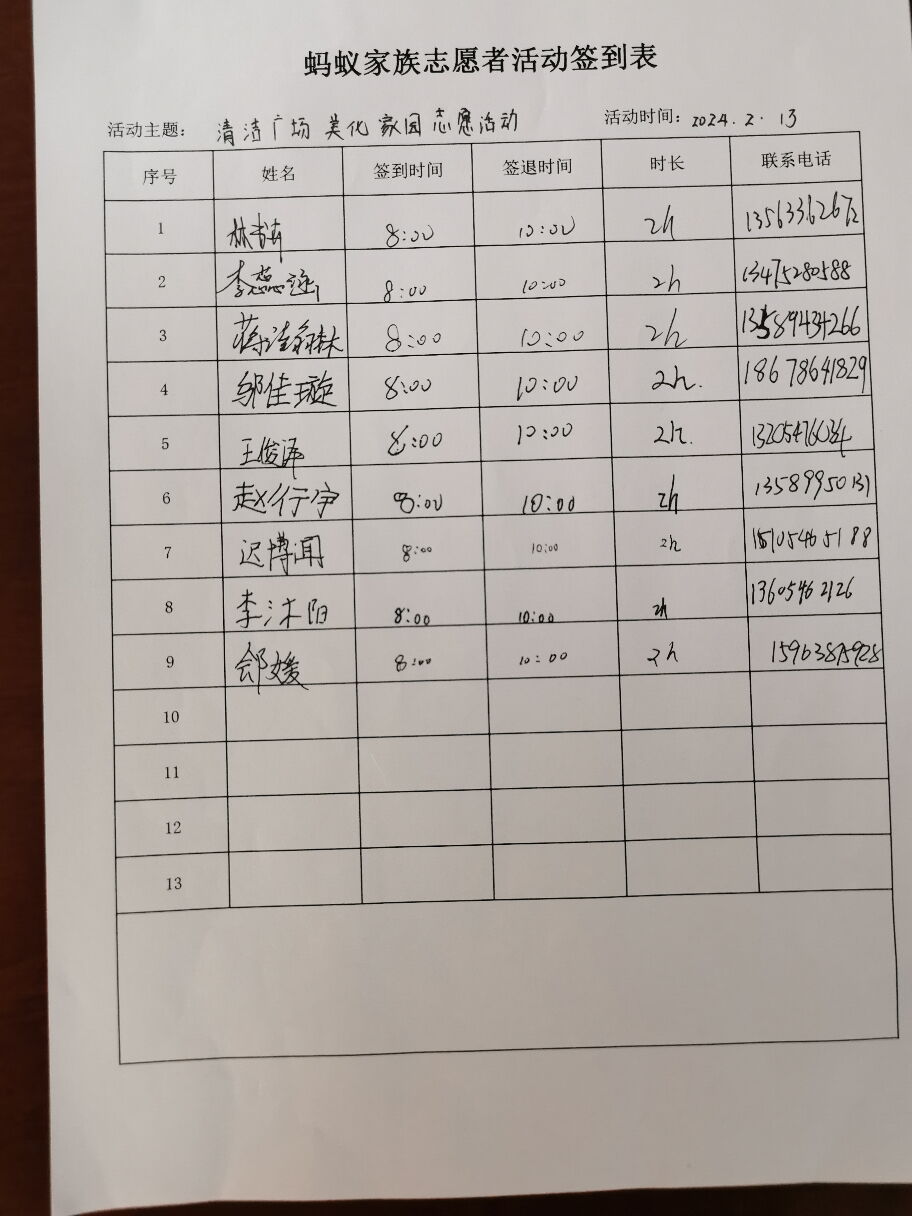 蚂蚁家族志愿者活动签到表
活动主题： 清洁广场 美化家园志愿活动 活动时间：2024.2.13
序号 姓名 签到时间 签退时间 时长 联系电话
1 8:00 10:00 2h 13563362672
2 李蕊 8:00 10:00 2h 13475280588
3 蒋洁 8:00 10:00 2h 13589434266
4 邬佳璇 8:00 10:00 2h. 18678641829
5 王俊泽 8:00 10:00 2h. 13205476034
6 赵行宇 8:00 10:00 2h 13589950131
7 迟博闻 8:00 10:00 2h 15105465188
8 李沐阳 8:00 10:00 2h 13605462126
9 郐媛 8:00 10:00 2h 15963875928
10
11
12
13